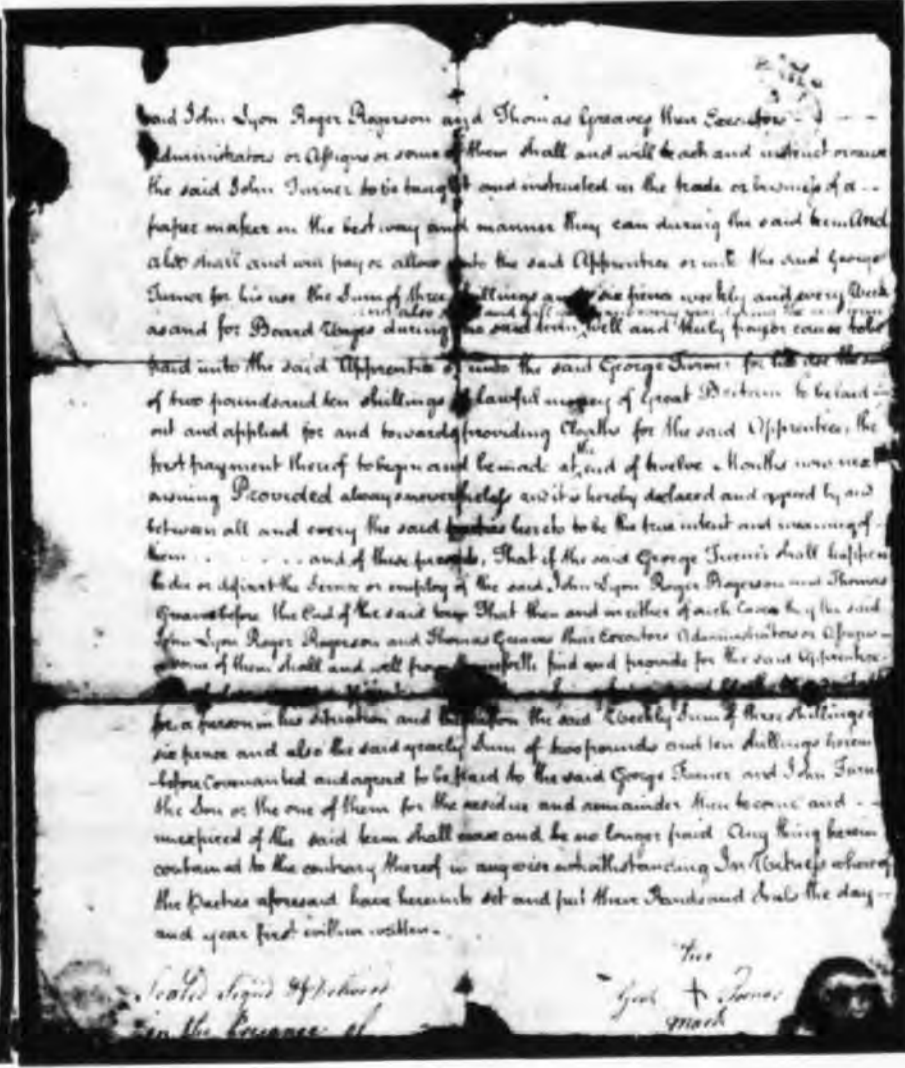 said John Lyon Roger Rogerson and Thomas Greaves their Executors - - - -
Administrators or Assigns or some of them shall and will teach and instruct or cause
the said John Turner to be taught and instructed in the trade or business of a --
paper maker in the best way and manner they can during the said term And
also shall and will pay or allow unto the said Apprentice or unto the said George
Turner for his use the Sum of three shillings and six pence weekly and every Week
and also shall and will every year during the said term
as and for Board Wages during the said term well and truly pay or cause to be
paid unto the said Apprentice or unto the said George Turner for his use the sum
of two pounds and ten shillings of lawful money of Great Britain to be laid
out and applied for and towards providing Cloaths for the said Apprentice, the
the
first payment thereof to begin and be made at end of twelve Months now next
ensuing Provided always nevertheless and it is hereby declared and agreed by and
between all and every the said parties hereto to be the true intent and meaning of -
them . . . . . . and of these presents, That if the said George Turner shall happen
to die or desert the Service or employ of the said John Lyon Roger Rogerson and Thomas
Greaves before the End of the said term That then and in either of such Cases they the said
John Lyon Roger Rogerson and Thomas Greaves their Executors Administrators or Assigns -
or some of them shall and will from forth find and provide for the said Apprentice -
for a person in his situation and the said Weekly Sum of three shillings &
six pence and also the said yearly Sum of two pounds and ten shillings herein
-before Covenanted and agreed to be paid to the said George Turner and John Turner
the Son or the one of them for the residue and remainder then to come and - -
unexpired of the said term shall cease and be no longer paid Any thing herein
contained to the contrary thereof in any wise notwithstanding In Witness whereof
the Parties aforesaid have hereunto set and put their Hands and Seals the day -
and year first within written.
Sealed Signd & Deliver'd
in the Presence of
his
Geo + Turner
mark